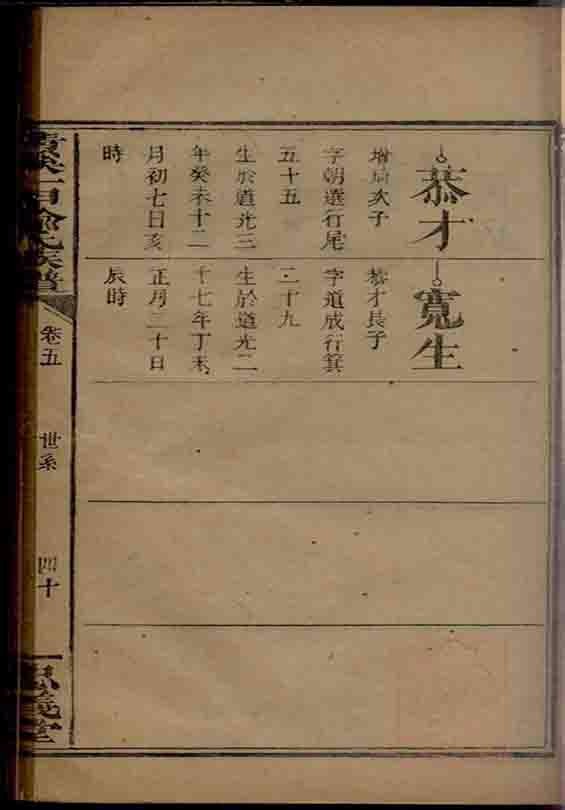 恭才
次子
字朝選行尾
五十五
生於道光三
年癸未十二
月初七日亥
時
寬生
恭才長子
字道成行箕
二十九
生於道光二
十七年丁未
正月三十日
辰時
氏族譜
卷五
世系
四十
義堂